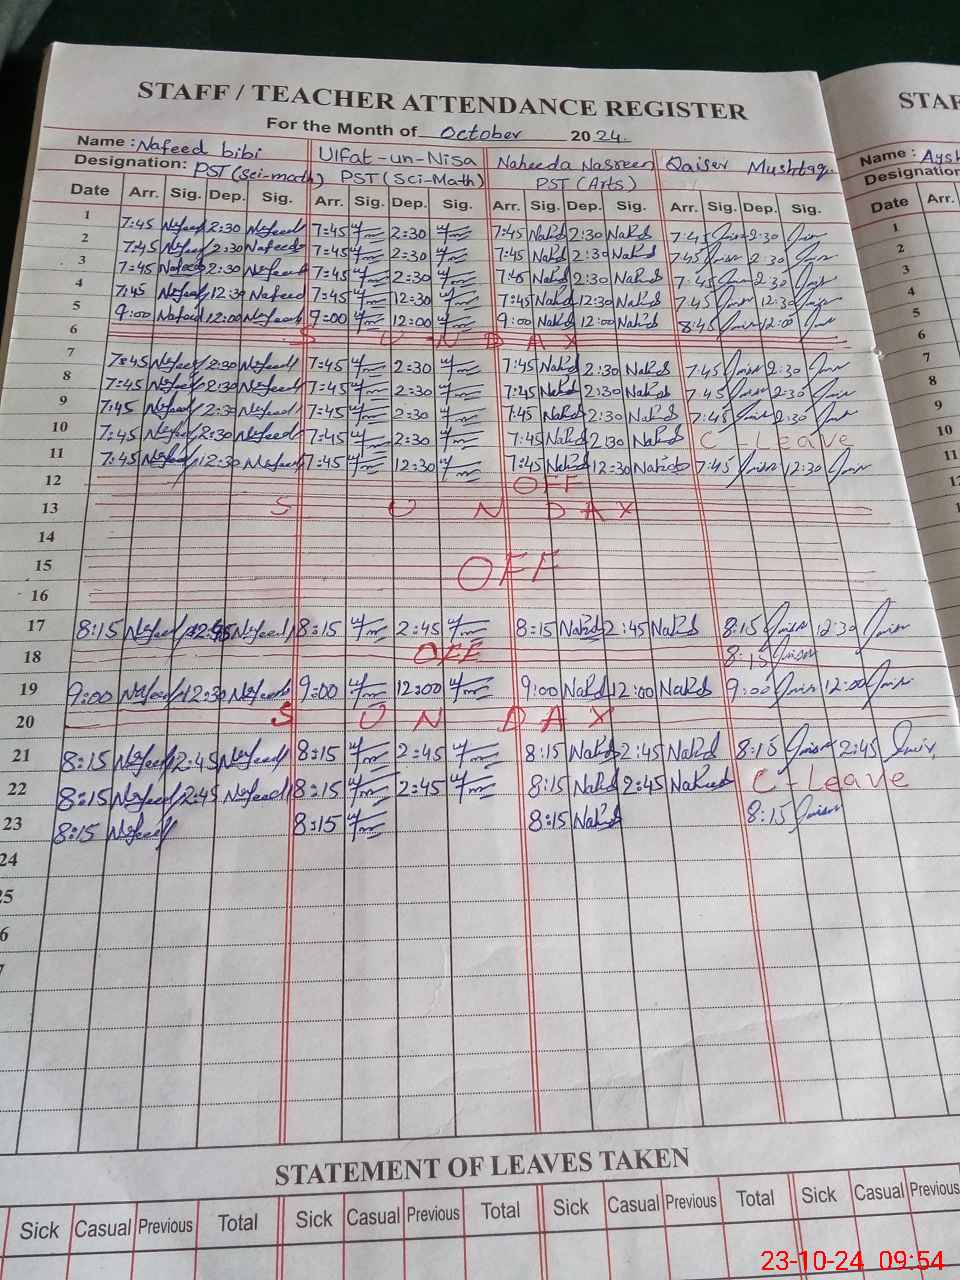 STAFF / TEACHER ATTENDANCE REGISTER
For the Month of October 2024.
Name : Nafeed bibi Ulfat-un-Nisa Naheeda Nasreen Qaiser Mushtaq.
Designation: PST (Sci-math) PST (Sci-Math) PST (Arts)
Date Arr. Sig. Dep. Sig. Arr. Sig. Dep. Sig. Arr. Sig. Dep. Sig. Arr. Sig. Dep. Sig.
1 7:45 Nafeed 2:30 Nafeed 7:45 2:30 7:45 Nahid 2:30 Nahid 7:45 2:30
2 7:45 Nafeed 2:30 Nafeed 7:45 2:30 7:45 Nahid 2:30 Nahid 7:45 2:30
3 7:45 Nafeed 2:30 Nafeed 7:45 2:30 7:45 Nahid 2:30 Nahid 7:45 2:30
4 7:45 Nafeed 12:30 Nafeed 7:45 12:30 7:45 Nahid 12:30 Nahid 7:45 12:30
5 9:00 Nafeed 12:00 Nafeed 9:00 12:00 9:00 Nahid 12:00 Nahid 8:45 12:00
6 S U N D A Y
7 7:45 Nafeed 2:30 Nafeed 7:45 2:30 7:45 Nahid 2:30 Nahid 7:45 2:30
8 7:45 Nafeed 2:30 Nafeed 7:45 2:30 7:45 Nahid 2:30 Nahid 7:45 2:30
9 7:45 Nafeed 2:30 Nafeed 7:45 2:30 7:45 Nahid 2:30 Nahid 7:45 2:30
10 7:45 Nafeed 2:30 Nafeed 7:45 2:30 7:45 Nahid 2:30 Nahid C - Leave
11 7:45 Nafeed 12:30 Nafeed 7:45 12:30 7:45 Nahid 12:30 Nahid 7:45 12:30
12 OFF
13 S U N D A Y
14
15 OFF
16
17 8:15 Nafeed Nafeed 8:15 2:45 8:15 Nahid 2:45 Nahid 8:15 12:30
18 OFF 8:15
19 9:00 Nafeed 12:30 Nafeed 9:00 12:00 9:00 Nahid 12:00 Nahid 9:00 12:00
20 S U N D A Y
21 8:15 Nafeed 2:45 Nafeed 8:15 2:45 8:15 Nahid 2:45 Nahid 8:15 2:45
22 8:15 Nafeed 2:45 Nafeed 8:15 2:45 8:15 Nahid 2:45 Nahid C - Leave
23 8:15 Nafeed 8:15 8:15 Nahid 8:15
24
25
6
7
STATEMENT OF LEAVES TAKEN
Sick Casual Previous Total Sick Casual Previous Total Sick Casual Previous Total Sick Casual Previous
STAF
Name : Aysh
Designation
Date Arr.
1
2
3
4
5
6
7
8
9
10
11
23-10-24 09:54